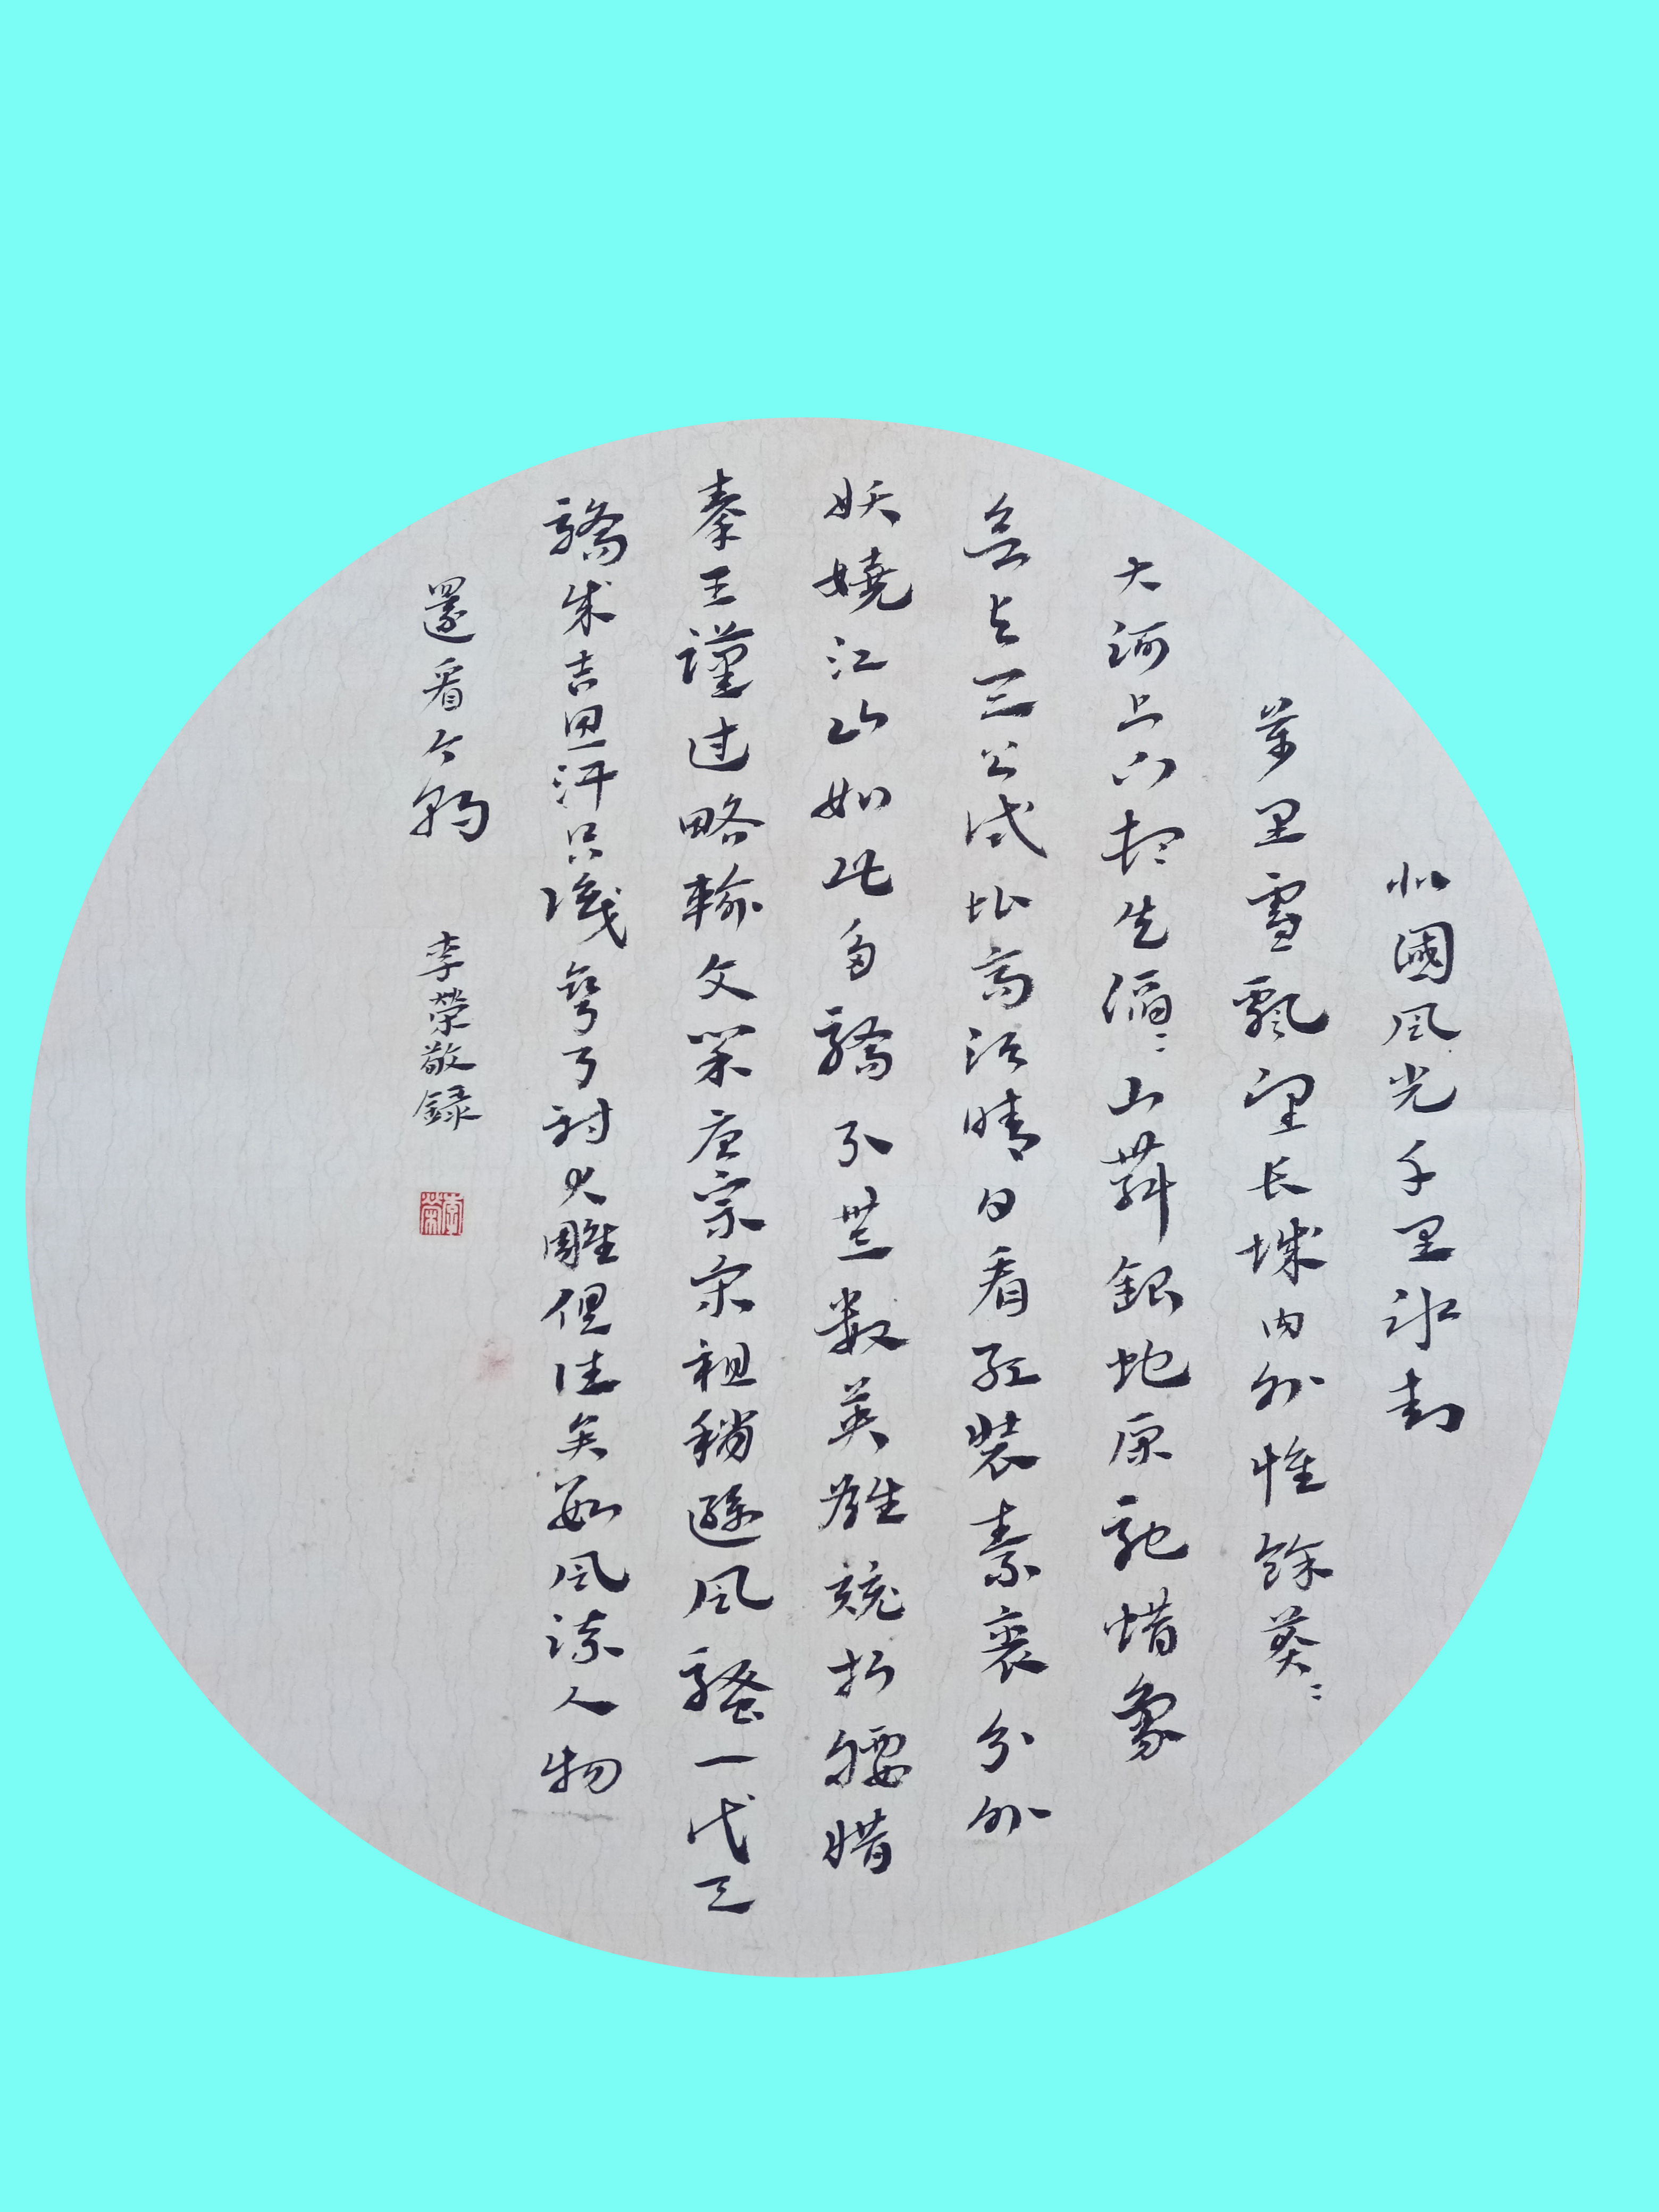 北國风光千里冰封
萬里雪飄望长城内外惟餘莽〻
大河上下顿失滔〻山舞銀蛇原驰蜡象
欲与天公试比高须晴日看红装素裹分外
妖嬈江山如此多驕引無数英雄競折腰惜
秦王謹过略輸文采唐宗宋祖稍遜风騷一代天
驕成吉思汗只識彎弓射大雕俱往矣数风流人物
還看今朝 李榮敬録
李榮